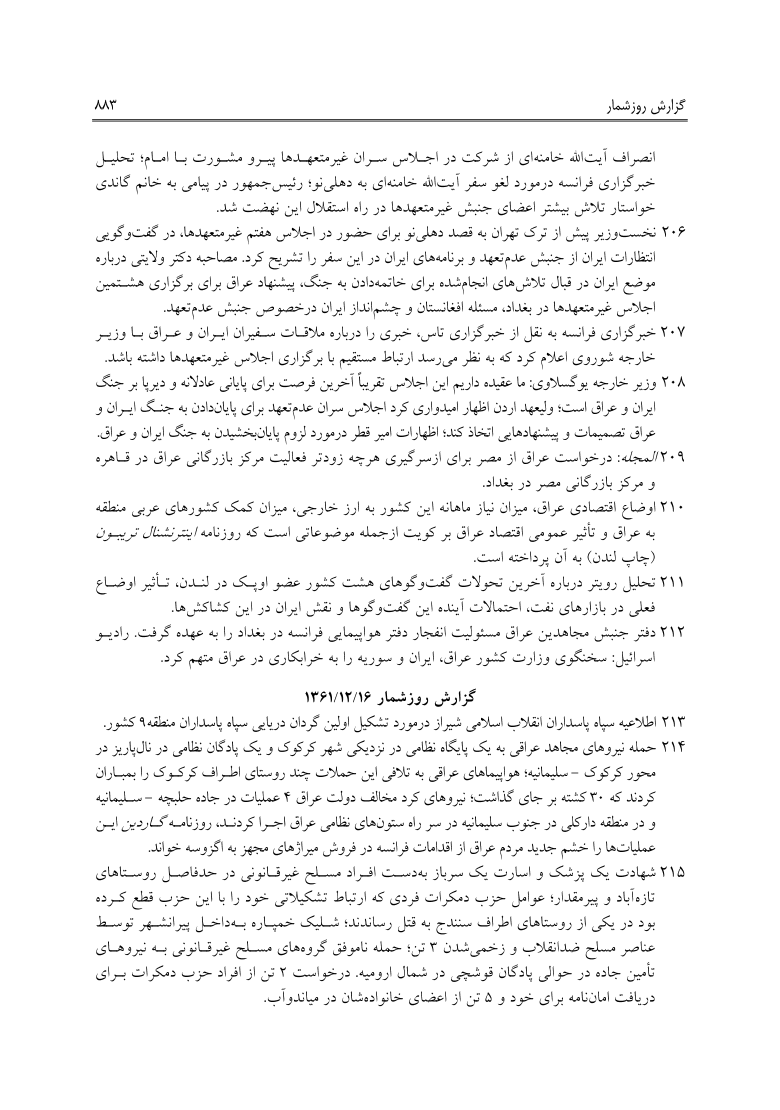 گزارش روزشمار
۸۸۳
انصراف آیت‌الله خامنه‌ای از شرکت در اجلاس سران غیرمتعهدها پیرو مشورت با امام؛ تحلیل
خبرگزاری فرانسه درمورد لغو سفر آیت‌الله خامنه‌ای به دهلی‌نو؛ رئیس‌جمهور در پیامی به خانم گاندی
خواستار تلاش بیشتر اعضای جنبش غیرمتعهدها در راه استقلال این نهضت شد.
۲۰۶ نخست‌وزیر پیش از ترک تهران به قصد دهلی‌نو برای حضور در اجلاس هفتم غیرمتعهدها، در گفت‌وگویی
انتظارات ایران از جنبش عدم‌تعهد و برنامه‌های ایران در این سفر را تشریح کرد. مصاحبه دکتر ولایتی درباره
موضع ایران در قبال تلاش‌های انجام‌شده برای خاتمه‌دادن به جنگ، پیشنهاد عراق برای برگزاری هشتمین
اجلاس غیرمتعهدها در بغداد، مسئله افغانستان و چشم‌انداز ایران درخصوص جنبش عدم‌تعهد.
۲۰۷ خبرگزاری فرانسه به نقل از خبرگزاری تاس، خبری را درباره ملاقات سفیران ایران و عراق با وزیر
خارجه شوروی اعلام کرد که به نظر می‌رسد ارتباط مستقیم با برگزاری اجلاس غیرمتعهدها داشته باشد.
۲۰۸ وزیر خارجه یوگسلاوی: ما عقیده داریم این اجلاس تقریباً آخرین فرصت برای پایانی عادلانه و دیرپا بر جنگ
ایران و عراق است؛ ولیعهد اردن اظهار امیدواری کرد اجلاس سران عدم‌تعهد برای پایان‌دادن به جنگ ایران و
عراق تصمیمات و پیشنهادهایی اتخاذ کند؛ اظهارات امیر قطر درمورد لزوم پایان‌بخشیدن به جنگ ایران و عراق.
۲۰۹ المجله: درخواست عراق از مصر برای ازسرگیری هرچه زودتر فعالیت مرکز بازرگانی عراق در قاهره
و مرکز بازرگانی مصر در بغداد.
۲۱۰ اوضاع اقتصادی عراق، میزان نیاز ماهانه این کشور به ارز خارجی، میزان کمک کشورهای عربی منطقه
به عراق و تأثیر عمومی اقتصاد عراق بر کویت ازجمله موضوعاتی است که روزنامه اینترنشنال تریبون
(چاپ لندن) به آن پرداخته است.
۲۱۱ تحلیل رویتر درباره آخرین تحولات گفت‌وگوهای هشت کشور عضو اوپک در لندن، تأثیر اوضاع
فعلی در بازارهای نفت، احتمالات آینده این گفت‌وگوها و نقش ایران در این کشاکش‌ها.
۲۱۲ دفتر جنبش مجاهدین عراق مسئولیت انفجار دفتر هواپیمایی فرانسه در بغداد را به عهده گرفت. رادیو
اسرائیل: سخنگوی وزارت کشور عراق، ایران و سوریه را به خرابکاری در عراق متهم کرد.
گزارش روزشمار ۱۳۶۱/۱۲/۱۶
۲۱۳ اطلاعیه سپاه پاسداران انقلاب اسلامی شیراز درمورد تشکیل اولین گردان دریایی سپاه پاسداران منطقه۹ کشور.
۲۱۴ حمله نیروهای مجاهد عراقی به یک پایگاه نظامی در نزدیکی شهر کرکوک و یک پادگان نظامی در نال‌پاریز در
محور کرکوک - سلیمانیه؛ هواپیماهای عراقی به تلافی این حملات چند روستای اطراف کرکوک را بمباران
کردند که ۳۰ کشته بر جای گذاشت؛ نیروهای کرد مخالف دولت عراق ۴ عملیات در جاده حلبچه - سلیمانیه
و در منطقه دارکلی در جنوب سلیمانیه در سر راه ستون‌های نظامی عراق اجرا کردند، روزنامه گاردین این
عملیات‌ها را خشم جدید مردم عراق از اقدامات فرانسه در فروش میراژهای مجهز به اگزوسه خواند.
۲۱۵ شهادت یک پزشک و اسارت یک سرباز به‌دست افراد مسلح غیرقانونی در حدفاصل روستاهای
تازه‌آباد و پیرمقدار؛ عوامل حزب دمکرات فردی که ارتباط تشکیلاتی خود را با این حزب قطع کرده
بود در یکی از روستاهای اطراف سنندج به قتل رساندند؛ شلیک خمپاره به‌داخل پیرانشهر توسط
عناصر مسلح ضدانقلاب و زخمی‌شدن ۳ تن؛ حمله ناموفق گروه‌های مسلح غیرقانونی به نیروهای
تأمین جاده در حوالی پادگان قوشچی در شمال ارومیه. درخواست ۲ تن از افراد حزب دمکرات برای
دریافت امان‌نامه برای خود و ۵ تن از اعضای خانواده‌شان در میاندوآب.